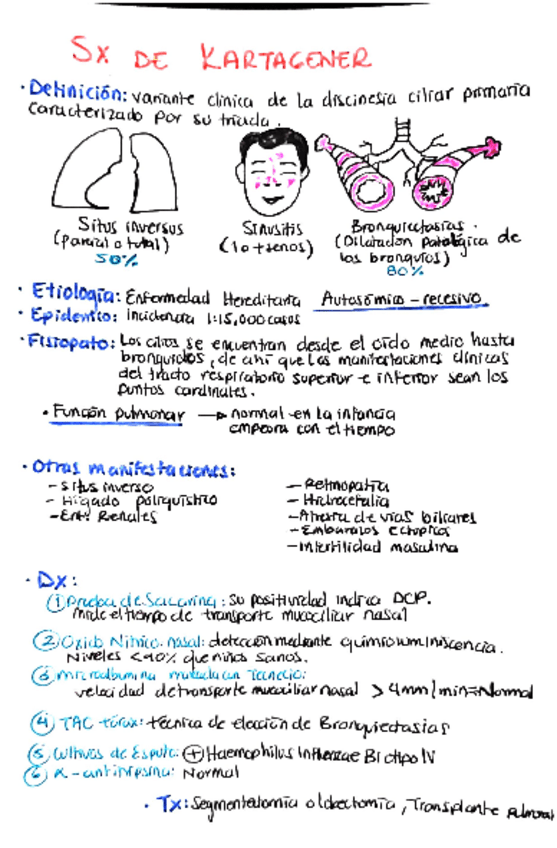 Sx DE KARTAGENER
• Definición: variante clínica de la discinesia ciliar primaria
caracterizado por su triada.
Situs inversus
(parcial o total)
50%
Sinusitis
(1 o + senos)
Bronquiectasias.
(Dilatación Patológica de
los bronquios)
80%
• Etiología: Enfermedad Hereditaria Autosómico - recesivo
• Epidemio: incidencia 1:15,000 casos
• Fisiopato: Los cilios se encuentran desde el oído medio hasta
bronquiolos, de ahí que las manifestaciones clínicas
del tracto respiratorio superior e inferior sean los
puntos cardinales.
• Función pulmonar → normal en la infancia
empeora con el tiempo
• Otras manifestaciones:
- situs inverso
- Hígado poliquístico
- Enf. Renales
- Retinopatía
- Hidrocefalia
- Atresia de vías biliares
- Embarazos ectópicos
- Infertilidad masculina
• Dx:
① Prueba de Sacarina: su positividad indica DCP.
mide el tiempo de transporte mucociliar nasal
② Oxido Nítrico nasal: detección mediante quimioluminiscencia.
Niveles < 90% que niños sanos.
③ microalbumina marcada con Tecnecio:
velocidad de transporte mucociliar nasal > 4mm/min = Normal
④ TAC tórax: técnica de elección de Bronquiectasias
⑤ Cultivos de Esputo: ⊕ Haemophilus Influenzae Biotipo IV
⑥ α-antitripsina: Normal
• Tx: Segmentectomía o lobectomía, Transplante pulmonar